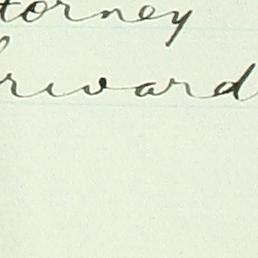 torney
rward